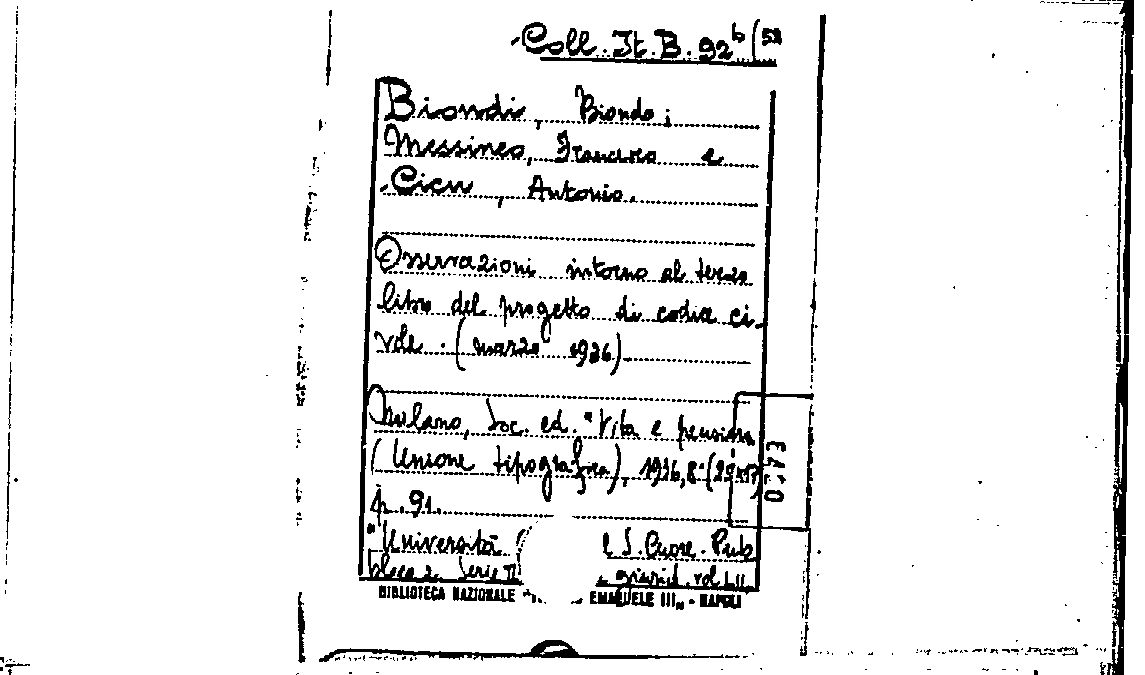 Coll. It. B. 92 b/(52
Biondi, Biondo;
Messineo, Francesco e
Cicu, Antonio.
Osservazioni intorno al terzo
libro del progetto di codice ci-
vile. (marzo 1936)
Milano, Soc. ed. "Vita e pensiero
(Unione tipografica), 1936, 8° (25x17)
p. 91.
"Università C e S. Cuore. Pub
blicaz. Serie II giurid. vol. LII.
BIBLIOTECA NAZIONALE EMANUELE III„ - NAPOLI